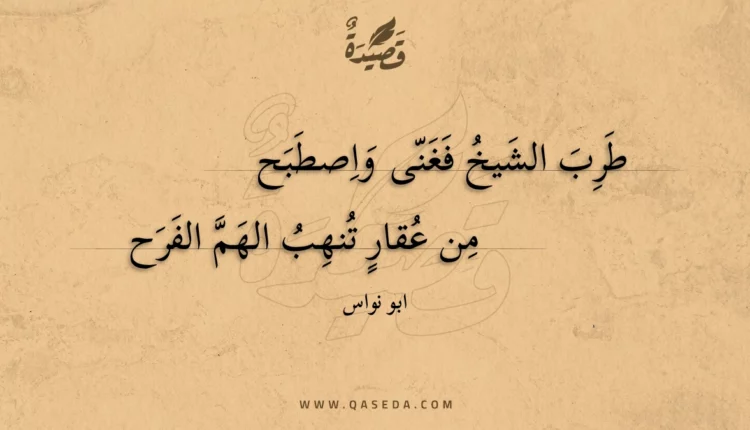 قَصِيْدَةٌ
طَرِبَ الشَيخُ فَغَنّى وَاِصطَبَح
مِن عُقارٍ تُنهِبُ الهَمَّ الفَرَح
ابو نواس
WWW.QASEDA.COM